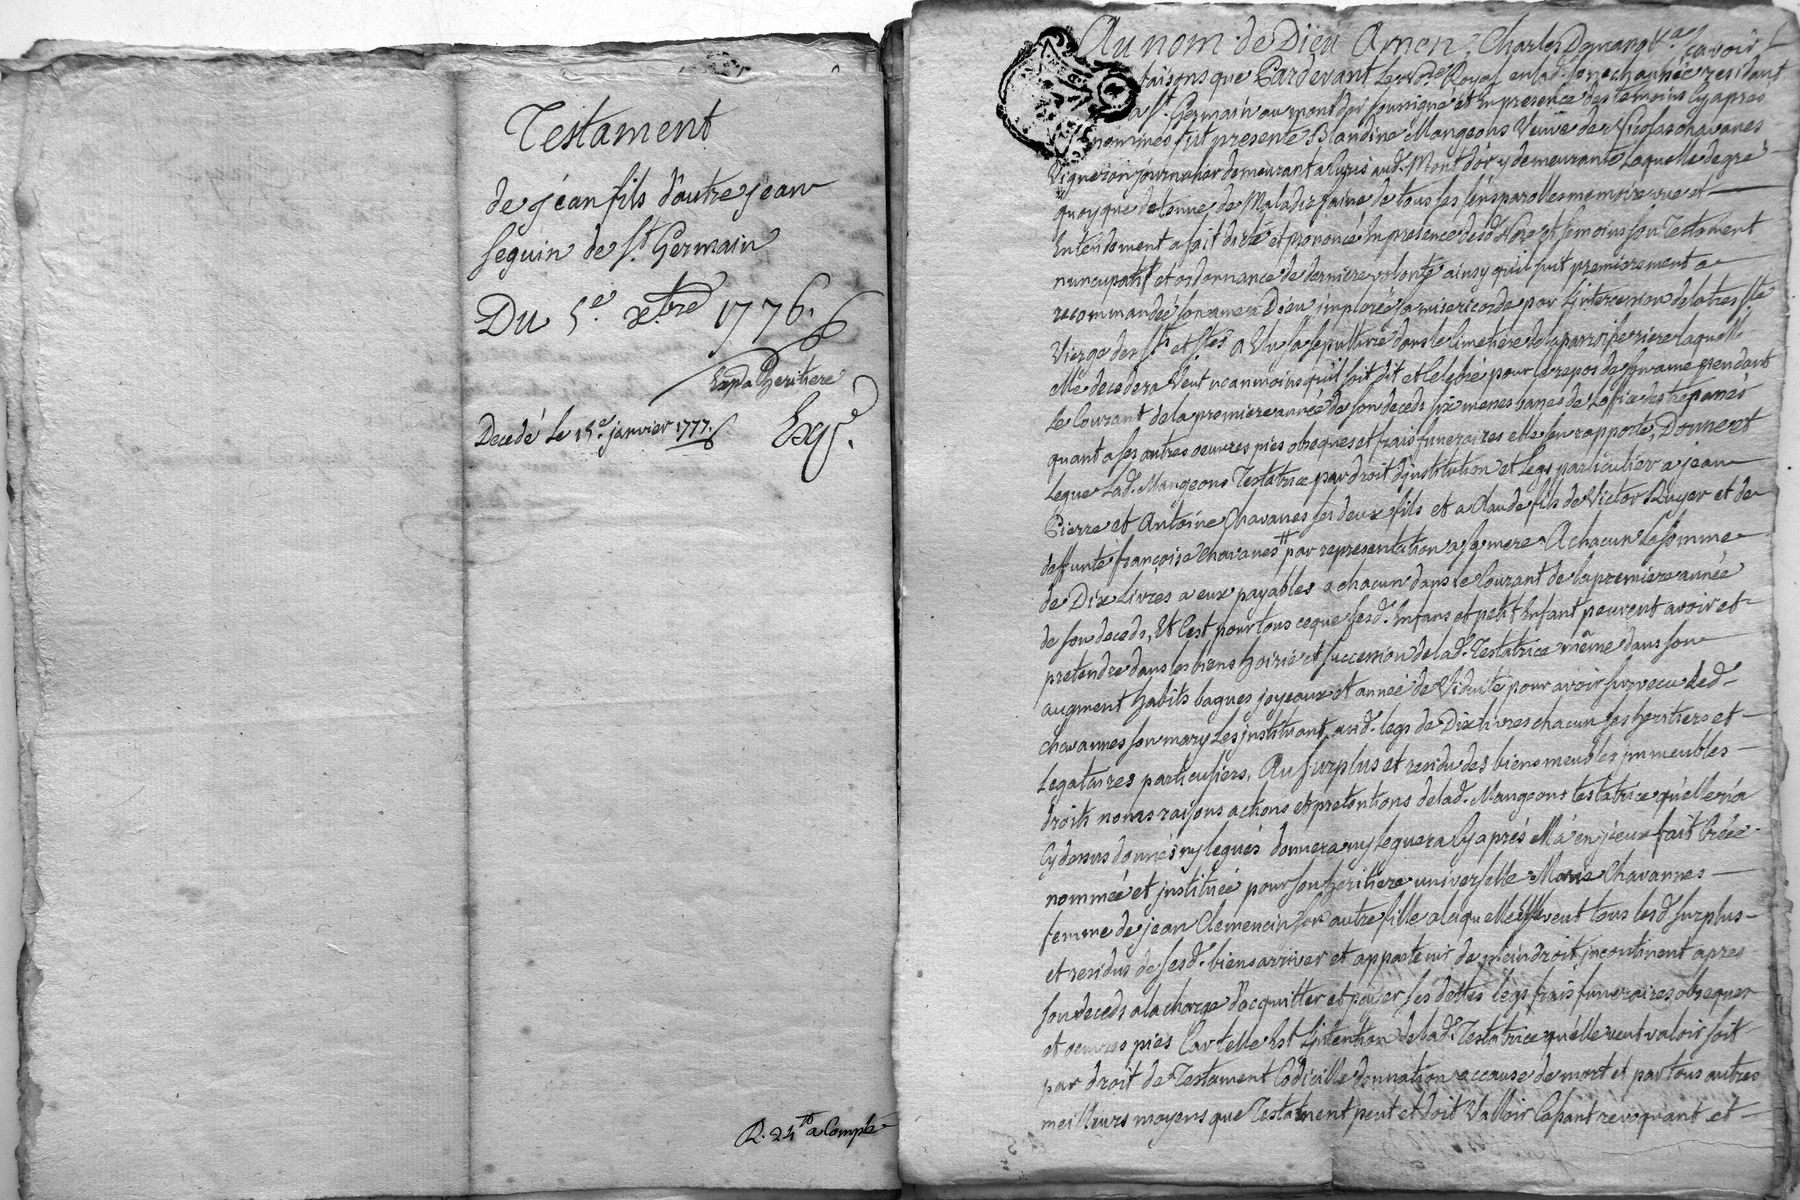 Testament
de jean fils d'autre jean
seguin de st. Germain
Du 5e. xbre 1776.
Lapa heritiere
Decedé Le 15e. janvier 1777.
Exp.
R. 24 s a Compte
Au nom de Dieu Amen, Charles savoir
faisons que Pardevant Le Nore Royal en lad. senechaussée residant
a St. Germain au mont d'or soussigné et en presence des temoins Cy après
nommés fut presente Blandine Mangeons Veuve de Nicolas chavanes
Vigneron journalier demeurant a Curis aud. Mont d'or y demeurante Laquelle de gré
quoyque detenue de Maladie saine de tous ses sens parolles memoire vue et
Entendement a fait dicté et prononcé En presence desd. Nore et temoins son Testament
nuncupatif et ordonnance de derniere volonté ainsy qu'il suit premierement a
recommandée son ame a Dieu imploré sa misericorde par L'intercession de la tres Ste
Vierge des Sts et Stes a Elu sa sepulture dans le Cimetiere de la parroisse riere laquelle
elle decedera Veut neanmoins qu'il soit dit et Celebré pour le repos de son ame pendant
Le Courant de la premiere année de son deceds six messes basses de Loffice des trepassés
quant a ses autres oeuvres pies obseques et frais funeraires elle s'en rapporte, Donne et
Legue Lad. Mangeons Testatrice par droit d'institution et Legs particulier a jean
Pierre et Antoine Chavanes ses deux fils et a Claude fils de Victor et de
deffunte françoise chavanes par representation a sa mere A chacun La somme
de Dix Livres a eux payables a chacun dans Le Courant de la premiere année
de son deceds, Et C'est pour tous ce que sesd. Enfans et petit Enfant peuvent avoir et
pretendre dans les biens hoirie et succession de lad. Testatrice même dans son
augment habits bagues joyeaux et année de Viduité pour avoir survecu Led.
chavannes son mary Les instituant aud. legs de Dix livres chacun ses heritiers et
Legataires particuliers, Au surplus et residu des biens meubles immeubles
droits noms raisons actions et pretentions de lad. Mangeons testatrice qu'elle n'a
Cy dessus donnés ny legués donnera ny leguera Cy après Ella en jceux fait Créée
nommée et instituée pour son heritiere universelle Marie Chavannes
femme de jean Clemencin son autre fille a laquelle elle veut tous lesd. surplus
et residus de sesd. biens arriver et appartenir de plein droit incontinent après
son deceds a la charge d'acquitter et payer ses dettes legs frais funeraires obseques
et oeuvres pies Car telle Est L'intention de lad. Testatrice qu'elle veut valoir soit
par droit de Testament Codicille donnation a cause de mort et par tous autres
meilleurs moyens que Testament peut et doit Valloir Cassant revoquant et